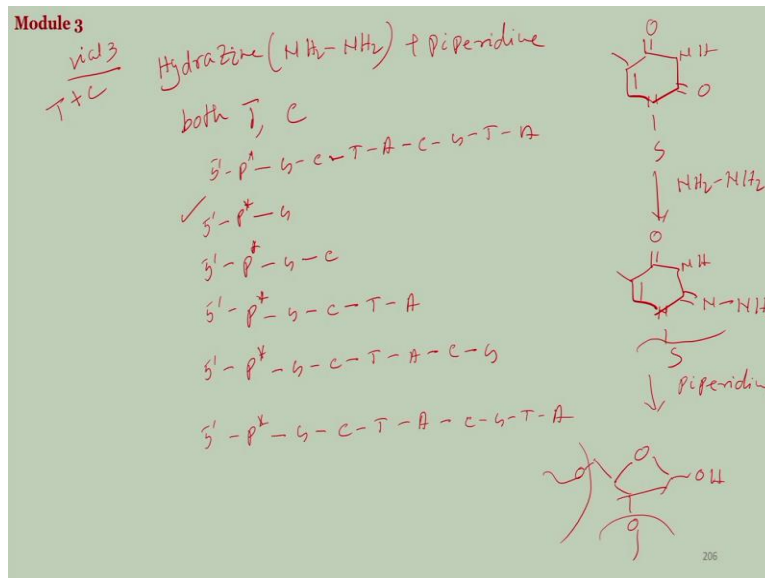 Module 3
vial 3
T+C
Hydrazine (NH2-NH2) + piperidine
both T, C
5'-P*-G-C-T-A-C-G-T-A
✓ 5'-P*-G
5'-P*-G-C
5'-P*-G-C-T-A
5'-P*-G-C-T-A-C-G
5'-P*-G-C-T-A-C-G-T-A
O
NH
O
N
S
NH2-NH2
O
NH
N-NH
N
S
piperidin
O
O
OH
O
206